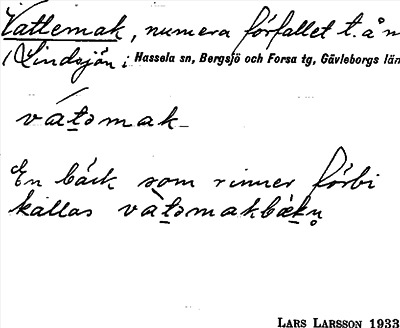 Vattemak, numera förfallet t. å n
(Lindsjön i Hassela sn, Bergsjö och Forsa tg, Gävleborgs län
vátəmak
En bäck som rinner förbi
kallas vàtəmakbækn̥
LARS LARSSON 1933